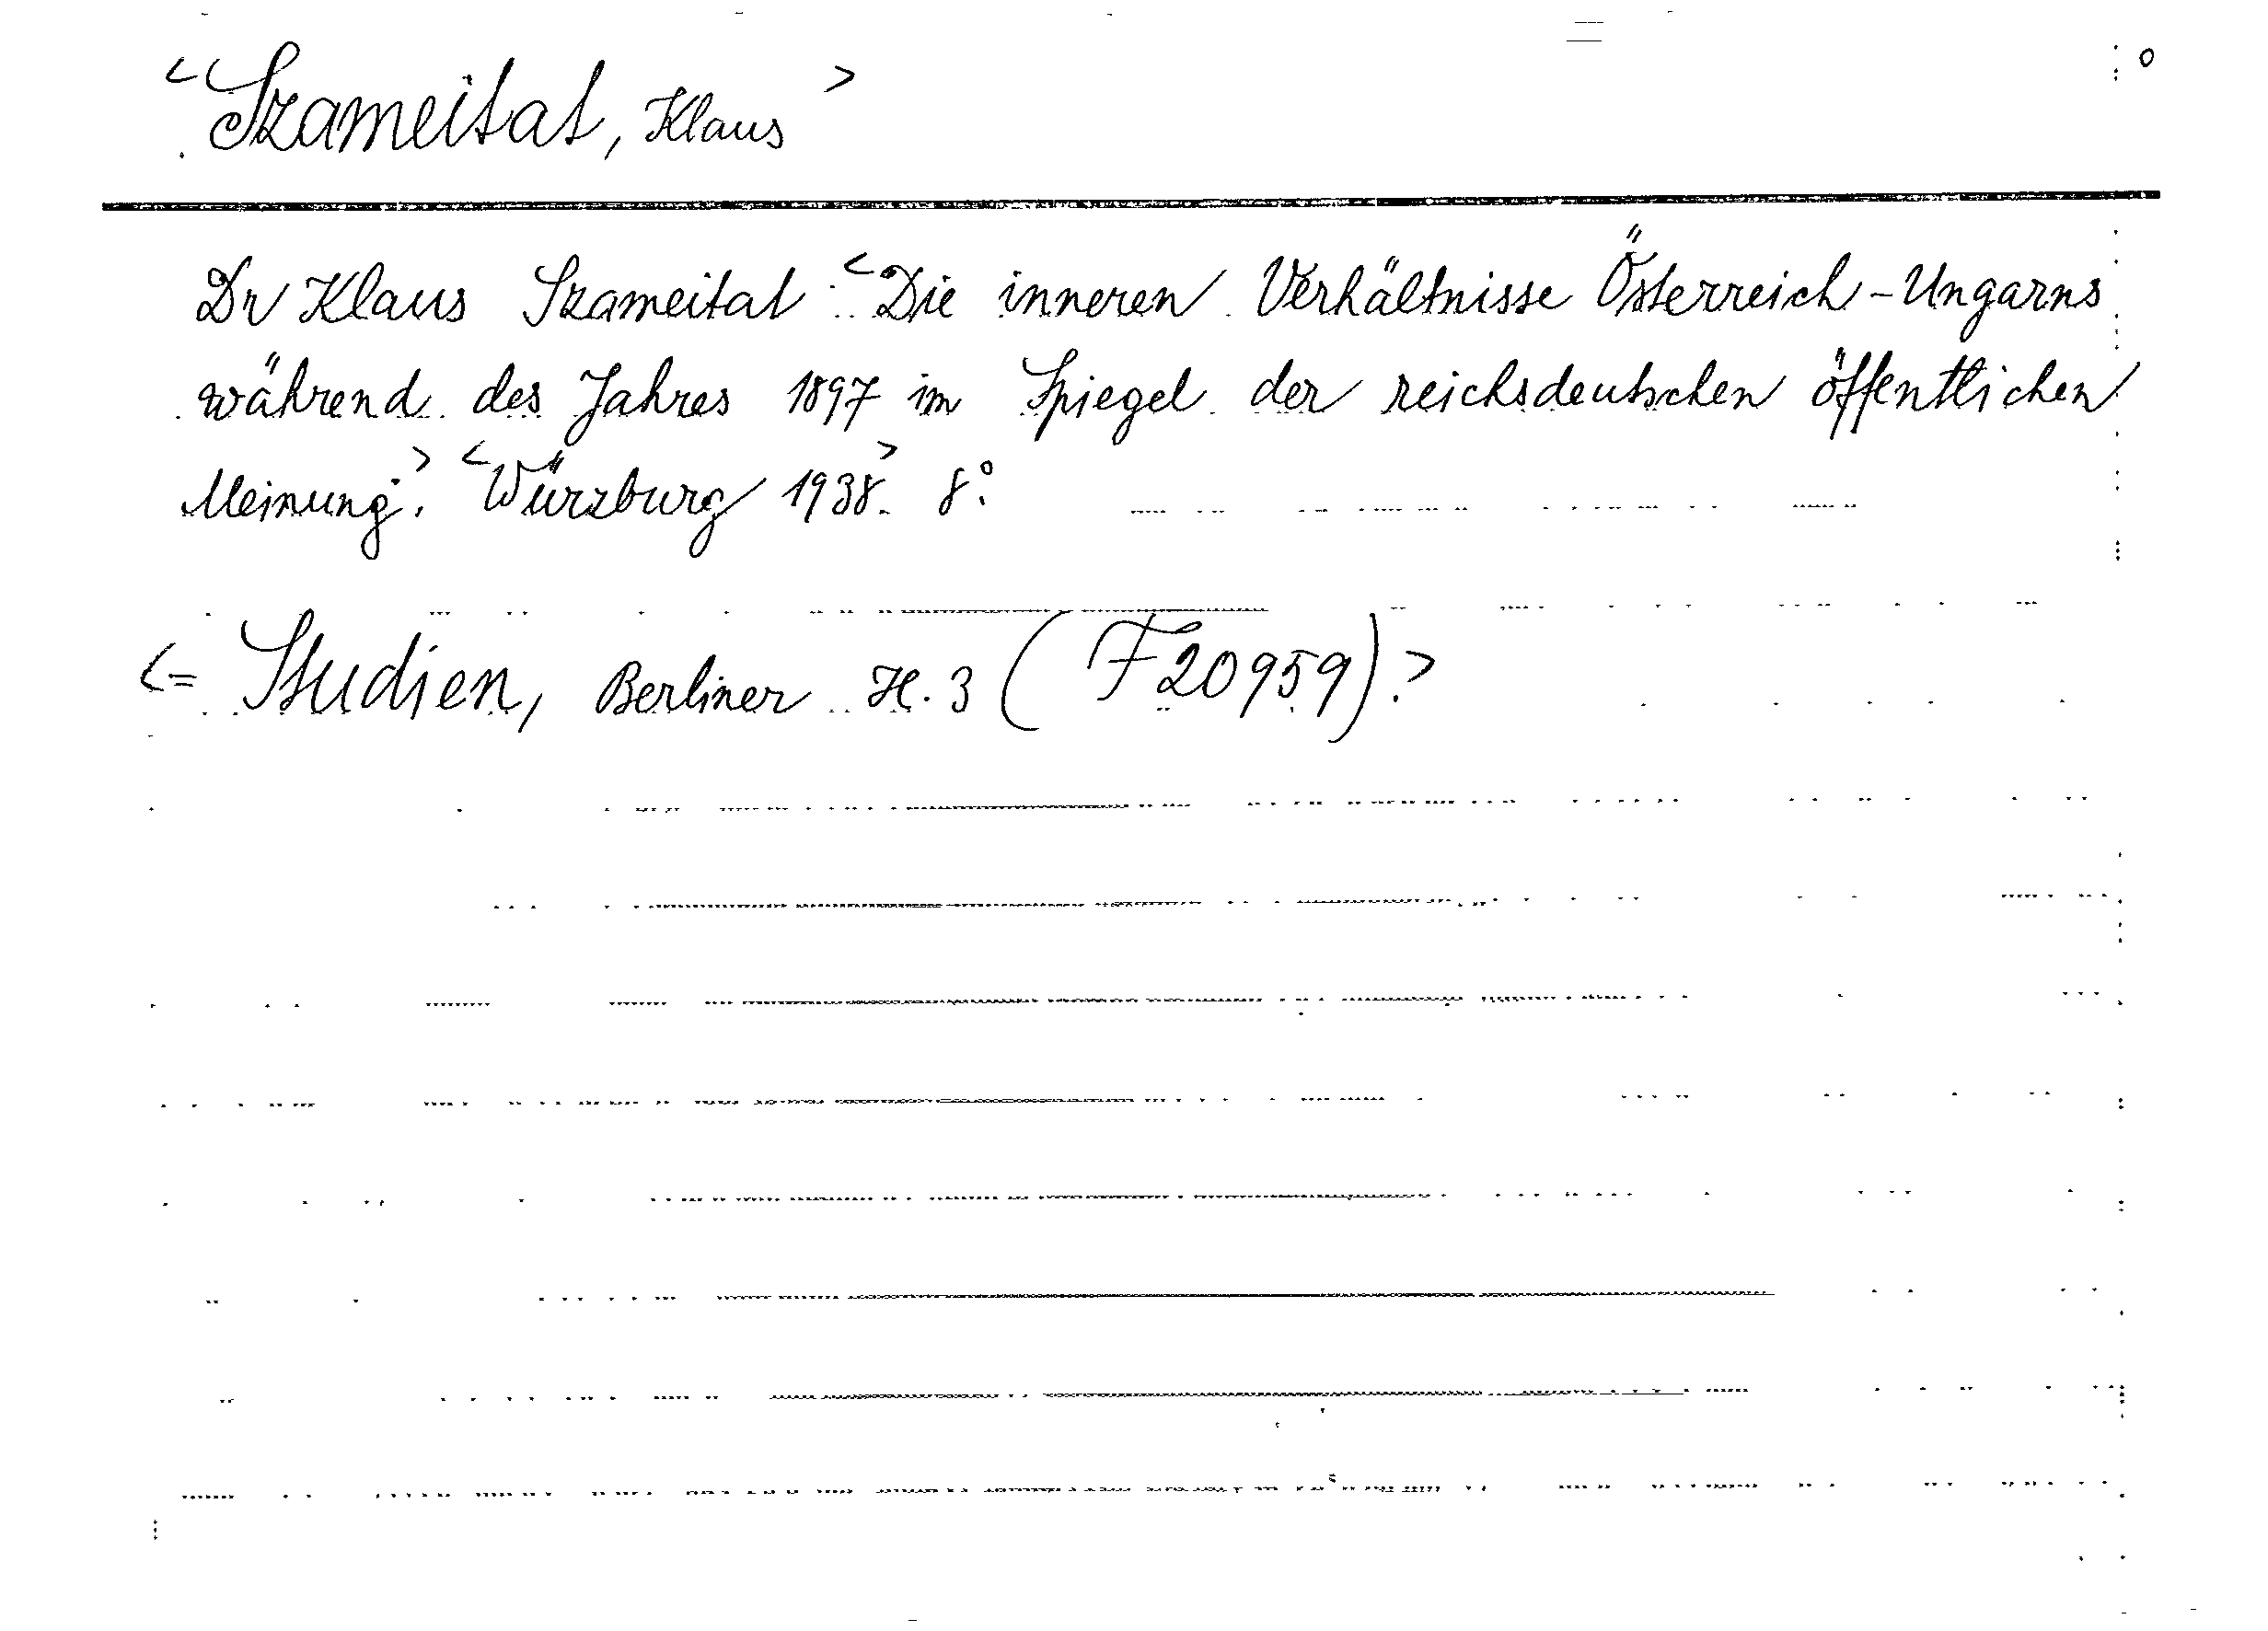 <Szameitat, Klaus>
Dr Klaus Szameitat: <Die inneren Verhältnisse Österreich-Ungarns
während des Jahres 1897 im Spiegel der reichsdeutschen öffentlichen
Meinung>. <Würzburg 1938>. 8°.
<= Studien, Berliner H. 3 (F20959).>